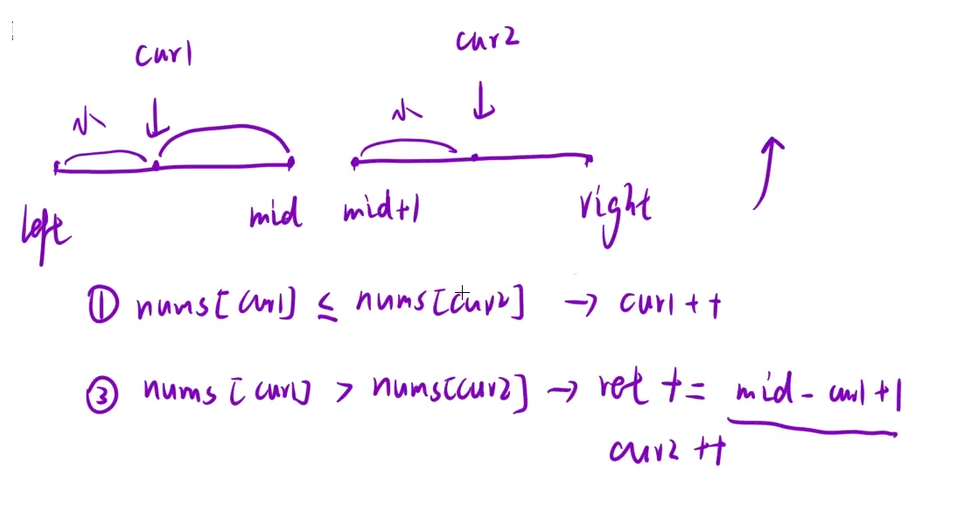 cur1 cur2
小 小
left mid mid+1 right
① nums[cur1] ≤ nums[cur2] → cur1++
③ nums[cur1] > nums[cur2] → ret += mid - cur1+1
cur2++